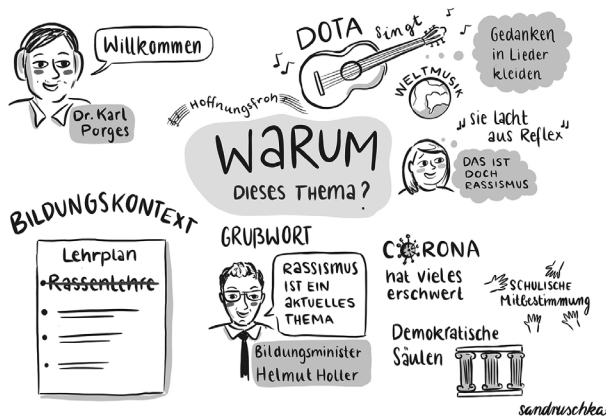 Willkommen
Dr. Karl
Porges
DOTA singt
Gedanken
in Lieder
kleiden
WELTMUSIK
Hoffnungsfroh
WARUM
DIESES THEMA?
„sie lacht
aus Reflex"
DAS IST
DOCH
RASSISMUS
BILDUNGSKONTEXT
Lehrplan
Rassenlehre
GRUßWORT
RASSISMUS
IST EIN
AKTUELLES
THEMA
Bildungsminister
Helmut Holler
CORONA
hat vieles
erschwert
SCHULISCHE
Mitbestimmung
Demokratische
Säulen
sandruschka